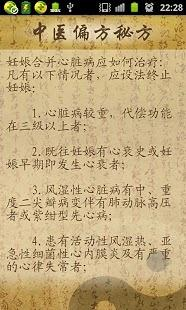 22:28
中医偏方秘方
妊娠合并心脏病应如何治疗:
凡有以下情况者，应设法终止
妊娠:
1. 心脏病较重，代偿功能
在三级以上者;
2. 既往妊娠有心衰史或妊
娠早期即发生心衰者;
3. 风湿性心脏病有中、重
度二尖瓣病变伴有肺动脉高压
者或紫绀型先心病;
4. 患有活动性风湿热、亚
急性细菌性心内膜炎及有严重
的心律失常者;